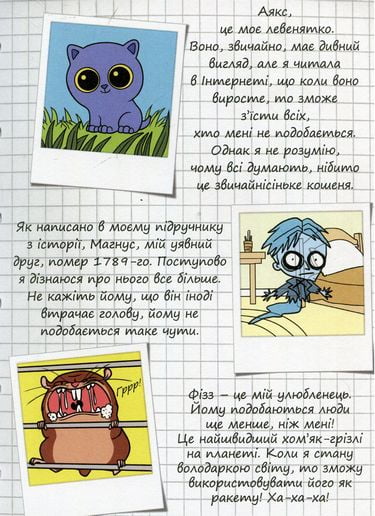 Аякс,
це моє левенятко.
Воно, звичайно, має дивний
вигляд, але я читала
в Інтернеті, що коли воно
виросте, то зможе
з'їсти всіх,
хто мені не подобається.
Однак я не розумію,
чому всі думають, нібито
це звичайнісіньке кошеня.
Як написано в моєму підручнику
з історії, Магнус, мій уявний
друг, помер 1789-го. Поступово
я дізнаюся про нього все більше.
Не кажіть йому, що він іноді
втрачає голову, йому не
подобається таке чути.
Гррр!
Фізз – це мій улюбленець.
Йому подобаються люди
ще менше, ніж мені!
Це найшвидший хом'як-грізлі
на планеті. Коли я стану
володаркою світу, то зможу
використовувати його як
ракету! Ха-ха-ха!